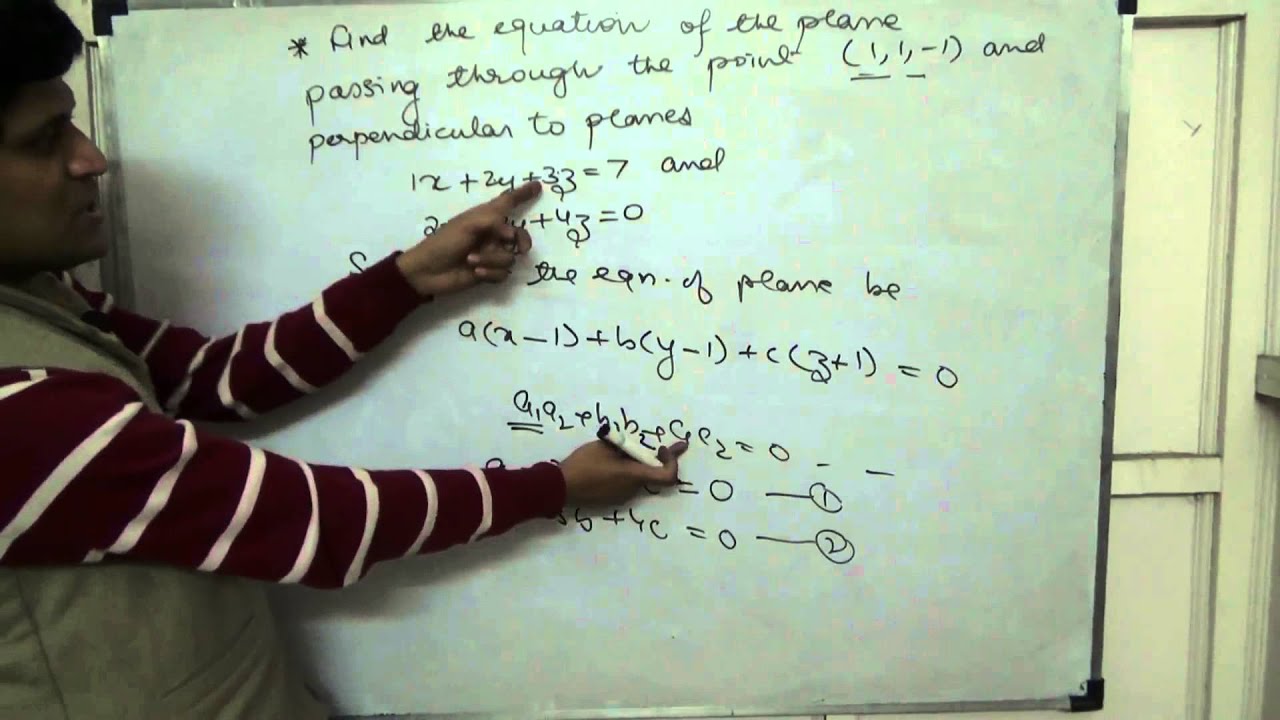 * Find the equation of the plane
passing through the point (1, 1, -1) and
perpendicular to planes
1x + 2y + 3z = 7 and
2 y + 4z = 0
the eqn. of plane be
a(x-1) + b(y-1) + c(z+1) = 0
a₁a₂ + b₁b₂ + c₁c₂ = 0 - -
= 0 — ①
3b + 4c = 0 — ②